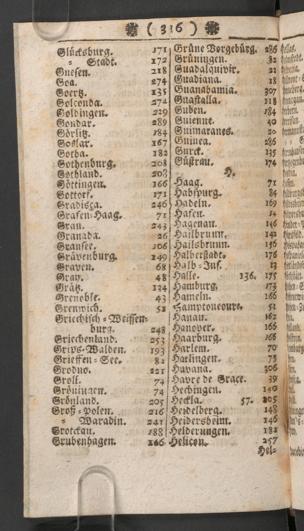 ( 316 )
Glücksburg. 171
- Stadt. 172
Gnesen. 218
Goa. 274
Goertz. 135
Golconda. 274
Goldingen. 229
Gondar. 289
Görlitz. 184
Goslar. 167
Gotha. 182
Gothenburg. 208
Gothland. 208
Göttingen. 166
Gottorf. 171
Gradisca. 246
Grafen-Haag. 71
Gran. 243
Granada. 26
Gransee. 106
Grävenburg. 149
Graven. 68
Gray. 48
Grätz. 134
Grenoble. 43
Grenwich. 52
Griechisch-Weissen-
burg. 248
Griechenland. 253
Grips-Walden. 193
Grieffen-See. 81
Grodno. 221
Groll. 74
Gröningen. 74
Grönland. 205
Groß-Polen. 216
- Waradin. 241
Grotckau. 188
Grubenhagen. 166
Grüne Vorgebürg. 286
Grüningen. 82
Guadalquivir. 21
Guadiana. 18
Guanahamia. 307
Guastalla. 118
Guben. 184
Guienne. 40
Guimaranes. 20
Guinea. 286
Gurck. 135
Güstrau. 174
H.
Haag. 71
Habspurg. 84
Hadeln. 169
Hafen. 14
Hagenau. 146
Hailbrunn. 141
Hailsbrunn. 156
Halberstadt. 176
Halb-Inf. 13
Halle. 136. 175
Hamburg. 173
Hameln. 166
Hamptoncourt. 52
Hanau. 162
Hanover. 165
Haarburg. 166
Harlem. 70
Harlingen. 73
Havana. 306
Havre de Grace. 39
Hechingen. 140
Heckla. 57. 205
Heidelberg. 148
Heidersheim. 146
Helderungen. 181
Helicon. 257
Hel-